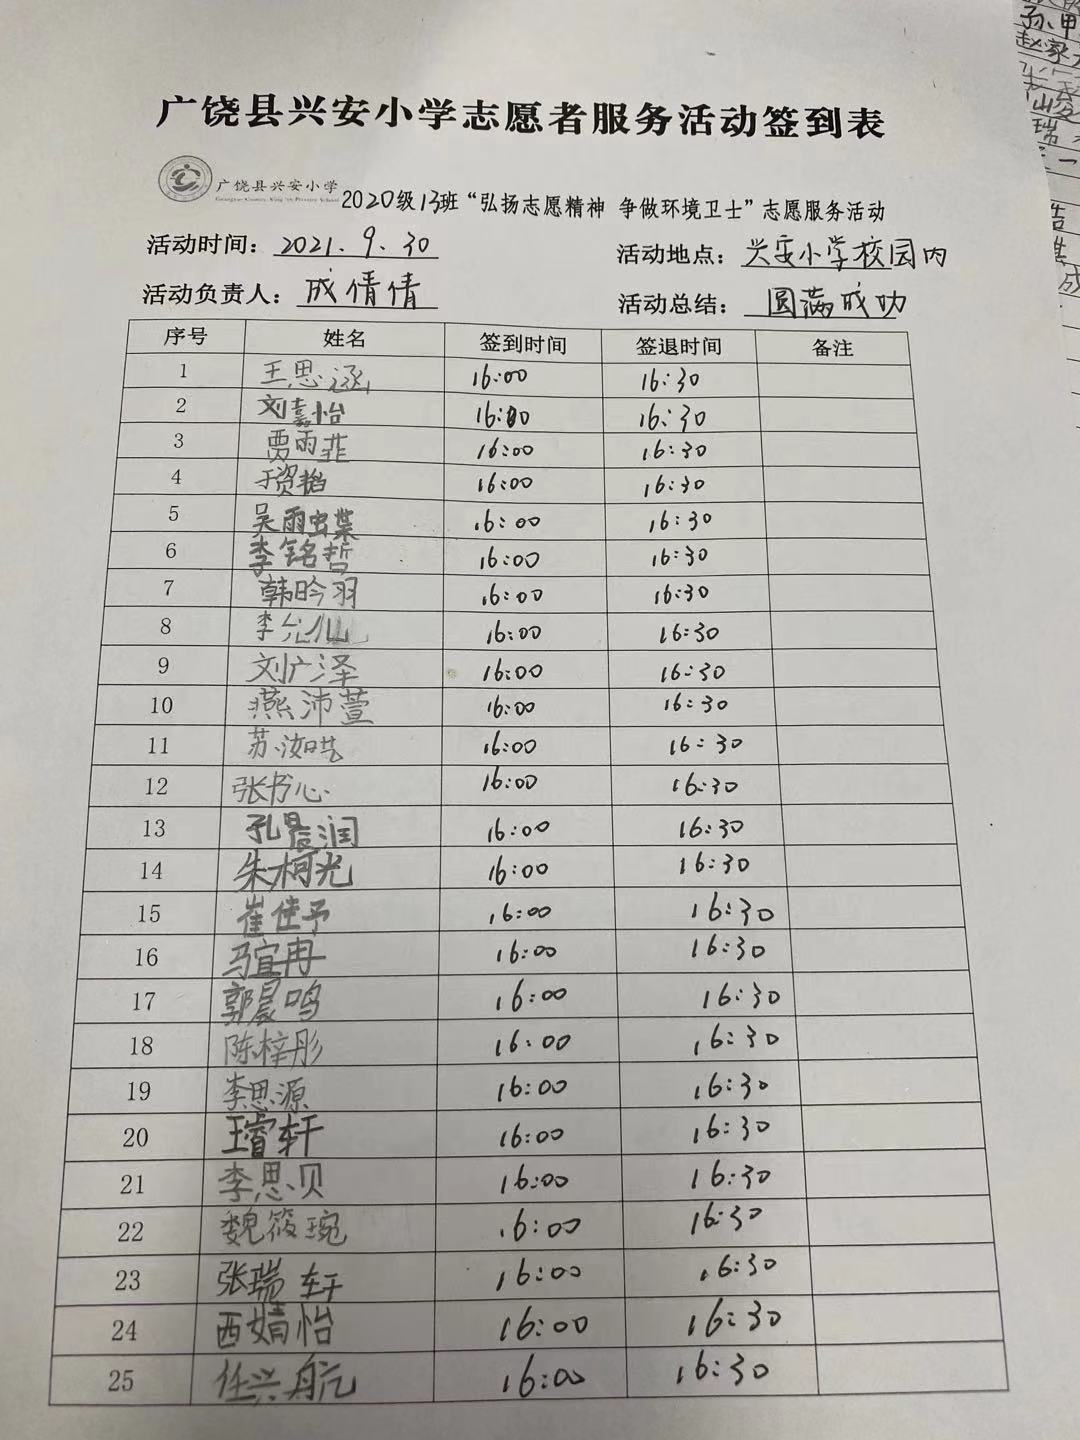 广饶县兴安小学志愿者服务活动签到表
广饶县兴安小学
2020级13班“弘扬志愿精神 争做环境卫士”志愿服务活动
活动时间：2021.9.30 活动地点：兴安小学校园内
活动负责人：成倩倩 活动总结：圆满成功
序号 姓名 签到时间 签退时间 备注
1 王思涵 16:00 16:30
2 刘嘉怡 16:00 16:30
3 贾雨菲 16:00 16:30
4 16:00 16:30
5 吴雨 16:00 16:30
6 李铭哲 16:00 16:30
7 韩昑羽 16:00 16:30
8 李允 16:00 16:30
9 刘广泽 16:00 16:30
10 燕沛萱 16:00 16:30
11 苏汝 16:00 16:30
12 张书心 16:00 16:30
13 孔晨润 16:00 16:30
14 朱柯光 16:00 16:30
15 崔佳予 16:00 16:30
16 马宜冉 16:00 16:30
17 郭晨鸣 16:00 16:30
18 陈梓彤 16:00 16:30
19 李思源 16:00 16:30
20 王睿轩 16:00 16:30
21 李思贝 16:00 16:30
22 魏筱琬 16:00 16:30
23 张瑞轩 16:00 16:30
24 西婧怡 16:00 16:30
25 任兴航 16:00 16:30